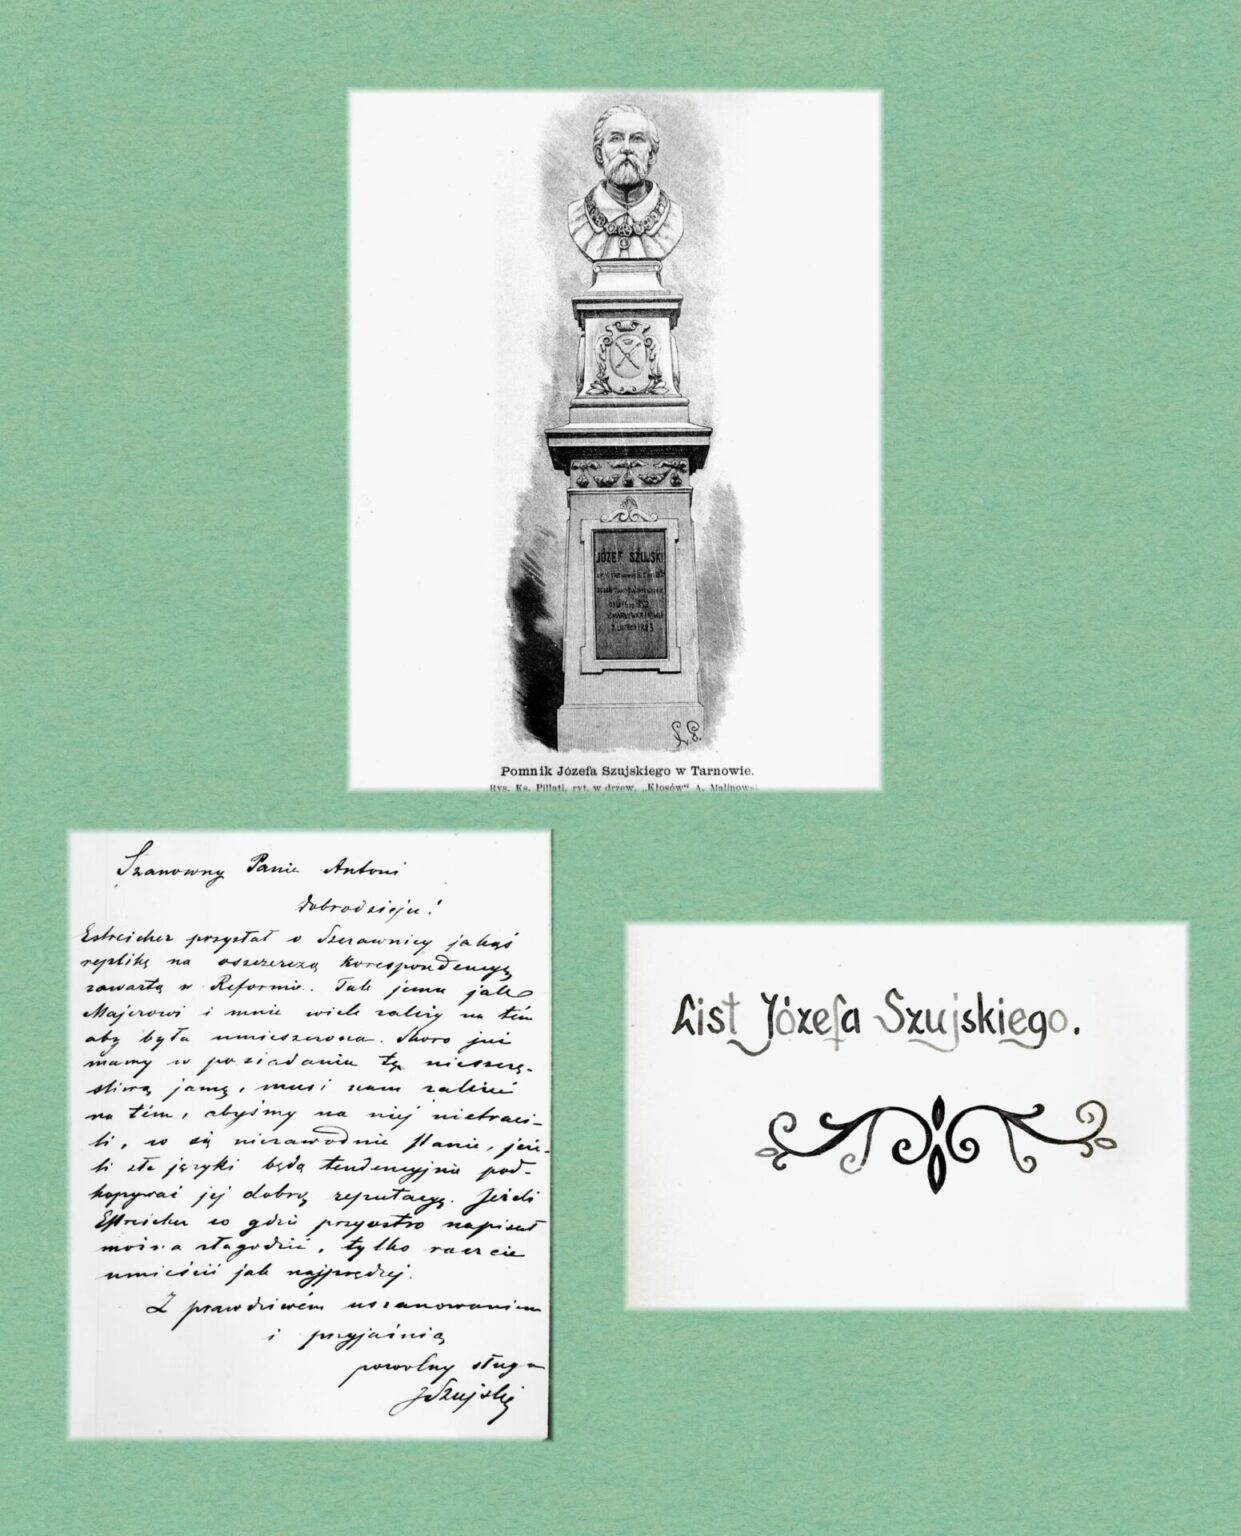 JÓZEF SZUJSKI
Pomnik Józefa Szujskiego w Tarnowie.
Rys. Ks. Pillati, ryt. w drzew. „Kłosów" A. Malinows
Szanowny Panie Antoni
dobrodzieju!
Estreicher przysłał o Szczawnicy jakąś
replikę na oszczerczą korespondencyę
zawartą w Reformie. Tak jemu jak
Majerowi i mnie wiele zależy na tém
aby była umieszczona. Skoro już
mamy w posiadaniu tę nieszczę-
śliwą jamę, musi nam zależeć
na tém, abyśmy na niej nietraci-
li, co się niezawodnie stanie, jeże-
li złe języki będą tendencyjnie pod-
kopywać jej dobrą reputacyę. Jeżeli
Estreicher co gdzie przyostro napisał
można złagodzić, tylko raczcie
umieścić jak najprędzej.
Z prawdziwém uszanowaniem
i przyjaźnią
powolny sługa
JSzujski
List Józefa Szujskiego.